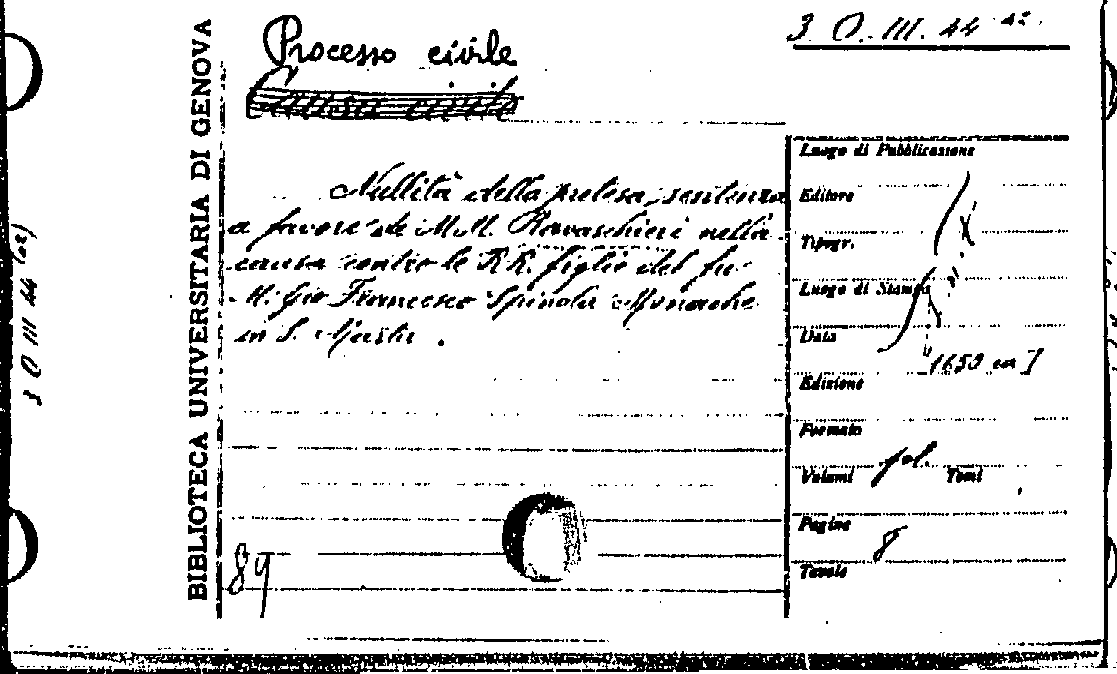 3. O. III. 44 42.
Processo civile
Causa civile
Nullità della pretesa sentenza
a favore de M.M. Ravaschieri nella
causa contro le RR. figlie del fu
M. Gio Francesco Spinola Monache
in S. Marta.
89
BIBLIOTECA UNIVERSITARIA DI GENOVA
3 O III 44
Luogo di Pubblicazione
Editore
Tipogr.
Luogo di Stampa
Data
[1650 ca]
Edizione
Formato
Volumi fol. Tomi
Pagine
8
Tavole